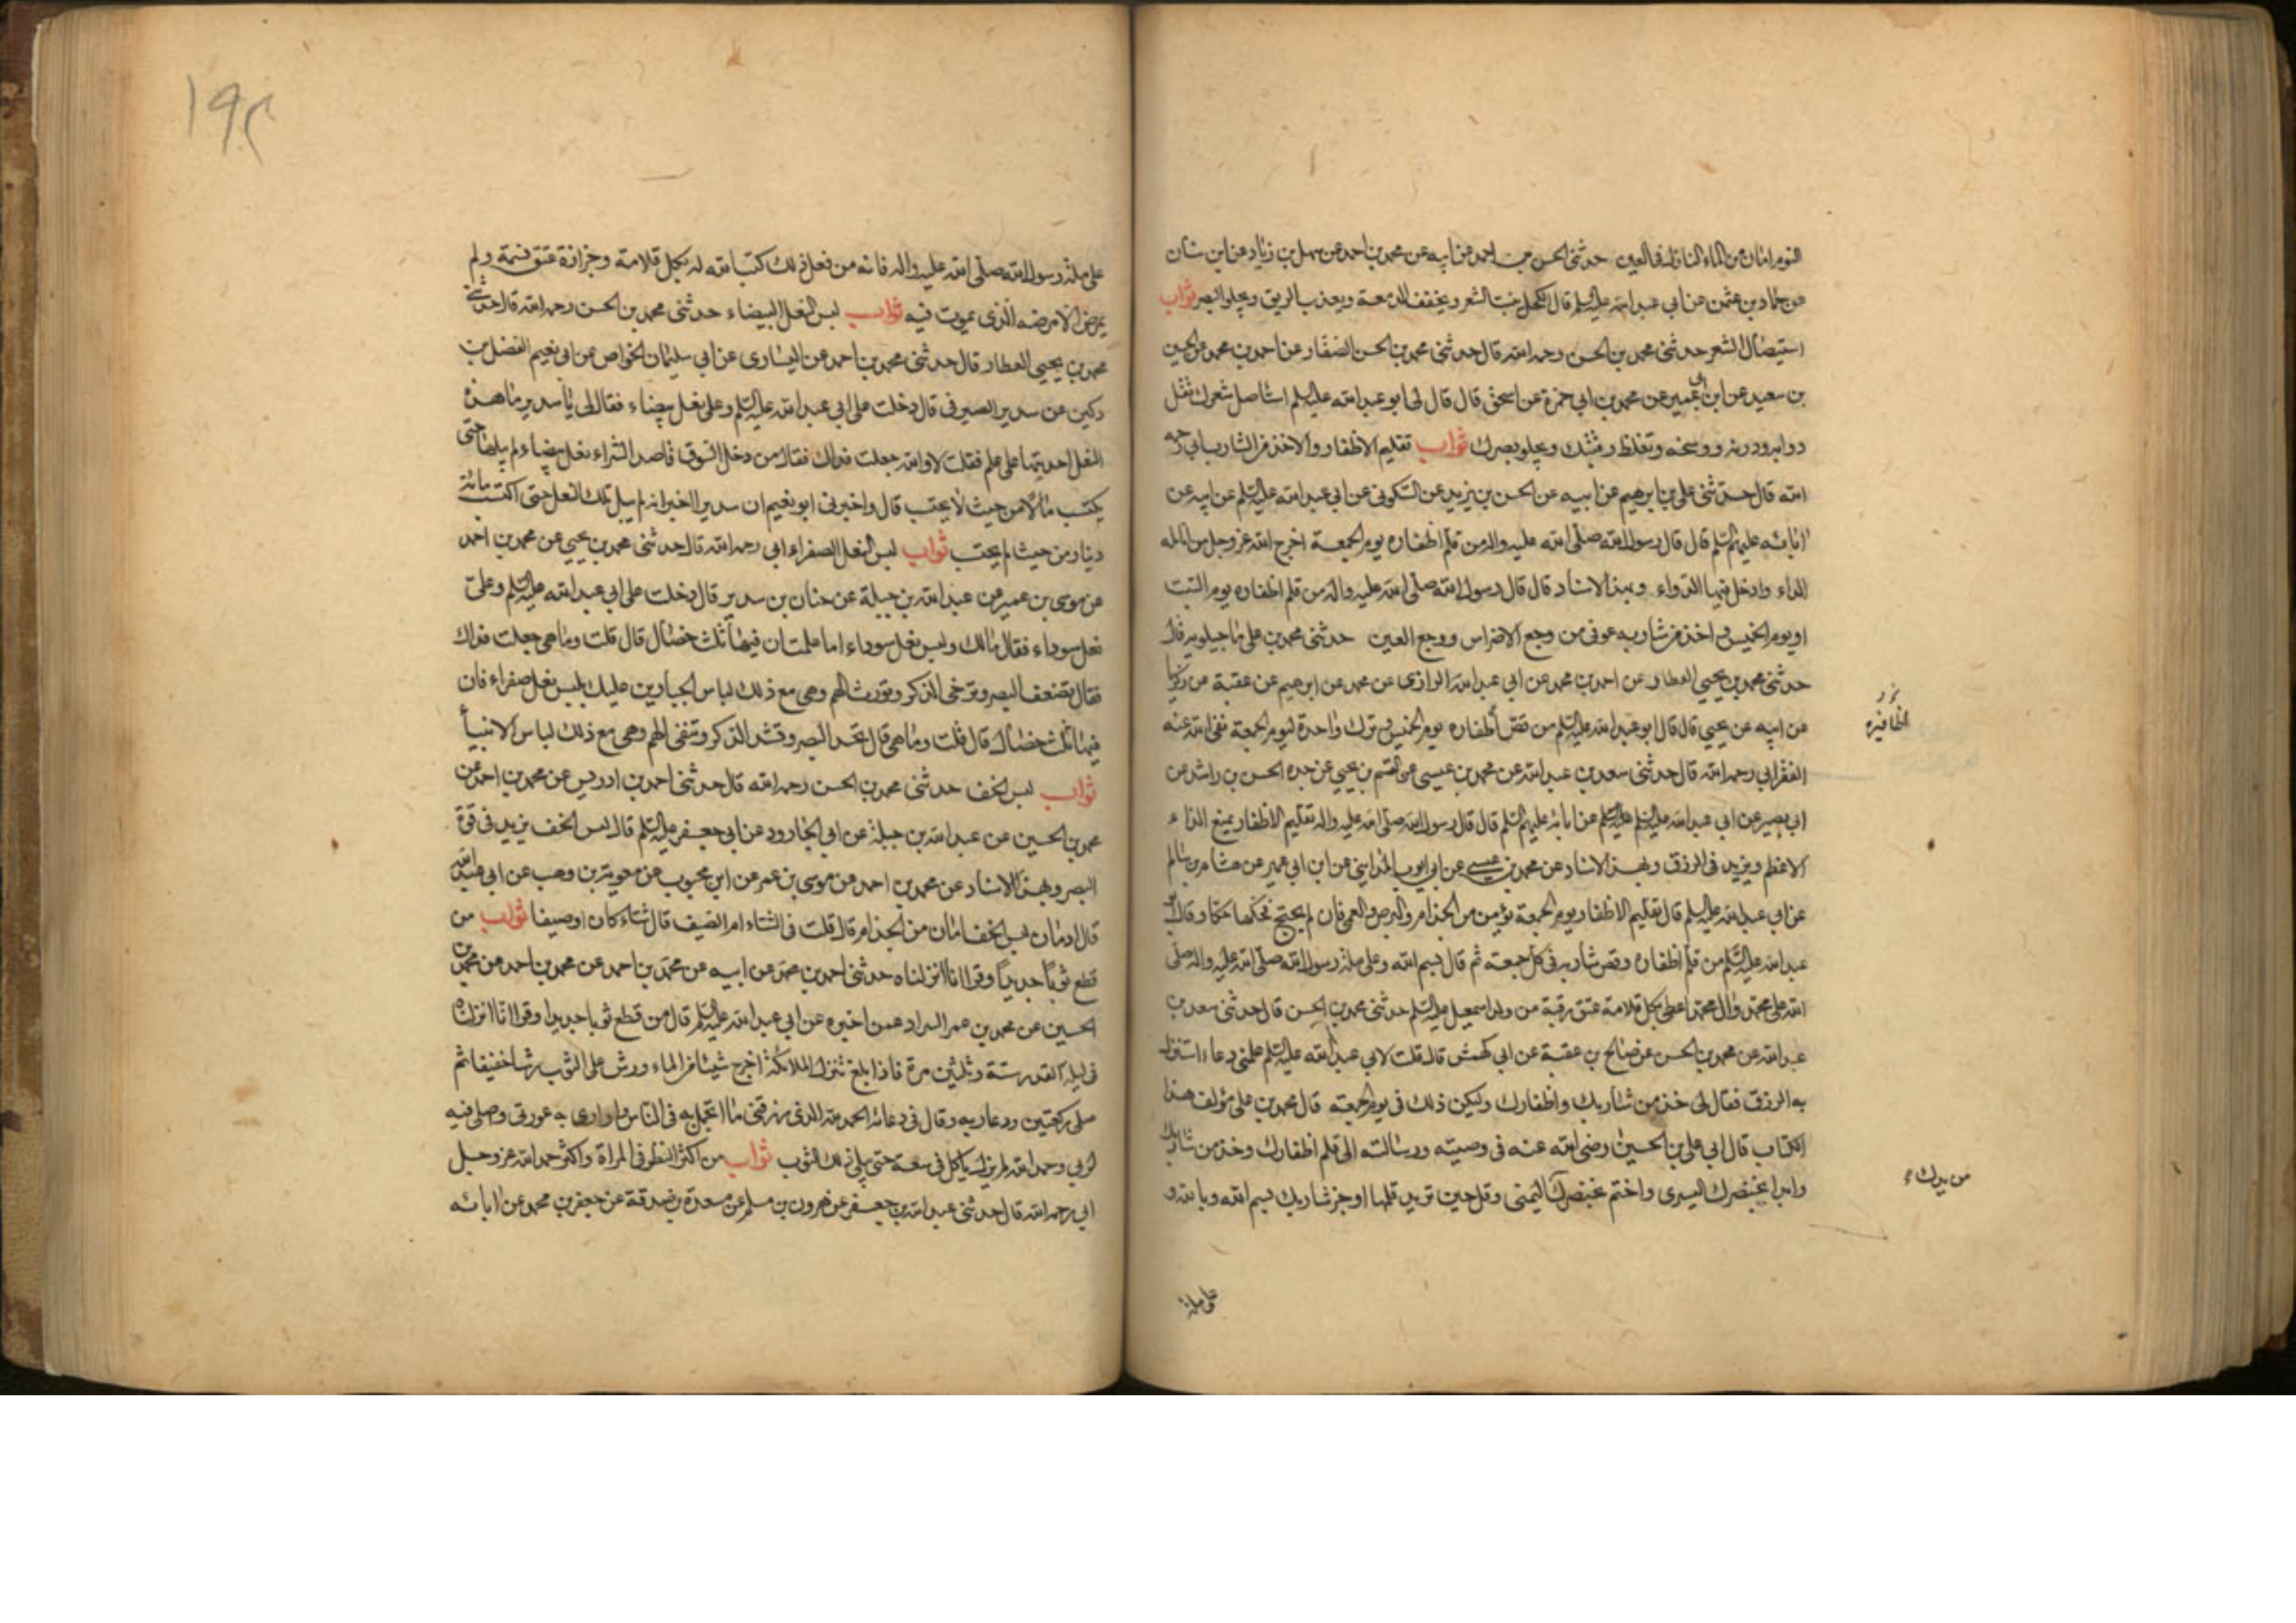 النوم امان من الماء النازل فى العين حدثنى الحسن بن احمد عن ابيه عن محمد بن احمد عن سهل بن زياد عن ابن سنان
عن حماد بن عثمن عن ابى عبد الله عليه السلم قال الكحل ينبت الشعر ويخفف الدمعة ويعذب الريق ويجلو البصر ثواب
استيصال الشعر حدثنى محمد بن الحسن رحمه الله قال حدثنى محمد بن الحسن الصفار عن احمد بن محمد عن الحسين
بن سعيد عن ابن ابى عمير عن محمد بن ابى حمزة عن اسحق قال قال لى ابو عبد الله عليه السلم استاصل شعرك تقل
دوابه ودرنه ووسخه وتغلظ رقبتك ويجلو بصرك ثواب تقليم الاظفار والاخذ من الشارب ابى رحمه
الله قال حدثنى على بن ابرهيم عن ابيه عن الحسن بن يزيد عن السكونى عن ابى عبد الله عليه السلم عن ابيه عن
ابائه عليهم السلم قال قال رسول الله صلى الله عليه واله من قلم اظفاره يوم الجمعة اخرج الله عز وجل من انامله
الداء وادخل فيها الدواء وبهذا الاسناد قال قال رسول الله صلى الله عليه واله من قلم اظفاره يوم السبت
او يوم الخميس واخذ من شاربه عوفى من وجع الاضراس ووجع العين حدثنى محمد بن على ماجيلويه قال
حدثنى محمد بن يحيى العطار عن احمد بن محمد عن ابى عبد الله الرازى عن محمد عن ابرهيم عن عقبة عن زكريا
عن ابيه عن يحيى قال قال ابو عبد الله عليه السلم من قص أظفاره يوم الخميس وترك واحدة ليوم الجمعة نفى الله عنه
الفقر ابى رحمه الله قال حدثنى سعد بن عبد الله عن محمد بن عيسى عن القسم بن يحيى عن جده الحسن بن راشد عن
ابى بصير عن ابى عبد الله عليه السلم عن ابائه عليهم السلم قال قال رسول الله صلى الله عليه واله تقليم الاظفار يمنع الداء
الاعظم ويزيد فى الرزق وبهذا الاسناد عن محمد بن عيسى عن ابى ايوب المداينى عن ابن ابى عمير عن هشام بن سالم
عن ابى عبد الله عليه السلم قال تقليم الاظفار يوم الجمعة يؤمن من الجذام والبرص والعمى فان لم يحتج فحكها حكا وقال ابو
عبد الله عليه السلم من قلم اظفاره وقص شاربه فى كل جمعة ثم قال بسم الله وعلى ملة رسول الله صلى الله عليه واله صلى
الله على محمد وال محمد اعطى بكل قلامة عتق رقبة من ولد اسمعيل عليه السلم حدثنى محمد بن الحسن قال حدثنى سعد بن
عبد الله عن محمد بن الحسن عن صالح بن عقبة عن ابى كهمش قال قلت لابى عبد الله عليه السلم علمنى دعاء استنزل
به الرزق فقال لى خذ من شاربك واظفارك وليكن ذلك فى يوم الجمعة قال محمد بن على مؤلف هذا
الكتاب قال ابى على بن الحسين رضى الله عنه فى وصيته ورسالته الى قلم اظفارك وخذ من شاربك
وابدا بخنصرك اليسرى واختم بخنصرك اليمنى وقل حين تريد قلمها او جز شاربك بسم الله وبالله و
اظافيره
من يدك
على ملة
١٩٢
على ملة رسول الله صلى الله عليه واله فانه من فعل ذلك كتب الله له بكل قلامة وجزازة عتق نسمة ولم
يمرض الا مرضه الذى يموت فيه ثواب لبس النعل البيضاء حدثنى محمد بن الحسن رحمه الله قال حدثنى
محمد بن يحيى العطار قال حدثنى محمد بن احمد عن اليسارى عن ابى سليمان الخواص عن ابى نعيم الفضل بن
دكين عن سدير الصيرفى قال دخلت على ابى عبد الله عليه السلم وعلى نعل بيضاء فقال لى يا سدير ما هذه
النعل احذيتها على علم فقلت لا والله جعلت فداك فقال من دخل السوق قاصد الشراء نعل بيضاء لم يبلها حتى
يكتسب مالا من حيث لا يحتسب قال واخبرنى ابو نعيم ان سديرا اخبر انه لم يبل تلك النعل حتى اكتسب مائة
دينار من حيث لم يحتسب ثواب لبس النعل الصفراء ابى رحمه الله قال حدثنى محمد بن يحيى عن محمد بن احمد
عن موسى بن عمير عن عبد الله بن جبلة عن حنان بن سدير قال دخلت على ابى عبد الله عليه السلم وعلى
نعل سوداء فقال مالك ولبس نعل سوداء اما علمت ان فيها ثلث خصال قال قلت وما هى جعلت فداك
فقال تضعف البصر وترخى الذكر وتورث الهم وهى مع ذلك لباس الجبارين عليك بلبس نعل صفراء فان
فيها ثلث خصال قال قلت وما هى قال تحد البصر وتشد الذكر وتنفى الهم وهى مع ذلك لباس الانبيا
ثواب لبس الخف حدثنى محمد بن الحسن رحمه الله قال حدثنى احمد بن ادريس عن محمد بن احمد عن
محمد بن الحسين عن عبد الله بن جبلة عن ابى الجارود عن ابى جعفر عليه السلم قال لبس الخف يزيد فى قوة
البصر وبهذا الاسناد عن محمد بن احمد عن موسى بن عمر عن ابن محبوب عن معوية بن وهب عن ابى عبد الله
قال ادمان لبس الخف امان من الجذام قال قلت فى الشتاء ام الصيف قال شتاء كان او صيفا ثواب من
قطع ثوبا جديدا وقرا انا انزلناه حدثنى احمد بن محمد عن ابيه عن محمد بن احمد عن محمد بن احمد عن محمد بن
الحسين عن محمد بن عمر السراد عمن اخبره عن ابى عبد الله عليه السلم قال من قطع ثوبا جديدا وقرا انا انزلناه
فى ليلة القدر ستة وثلثين مرة فاذا بلغ تنزل الملائكة اخرج شيئا من الماء ورش على الثوب رشا خفيفا ثم
صلى ركعتين ودعا ربه وقال فى دعائه الحمد لله الذى رزقنى ما اتجمل به فى الناس واوارى به عورتى وصلى فيه
لربى وحمد الله لم يزل ياكل فى سعة حتى يبلى ذلك الثوب ثواب من اكثر النظر فى المراة واكثر حمد الله عز وجل
ابى رحمه الله قال حدثنى عبد الله بن جعفر عن هرون بن مسلم عن مسعدة بن صدقة عن جعفر بن محمد عن ابائه